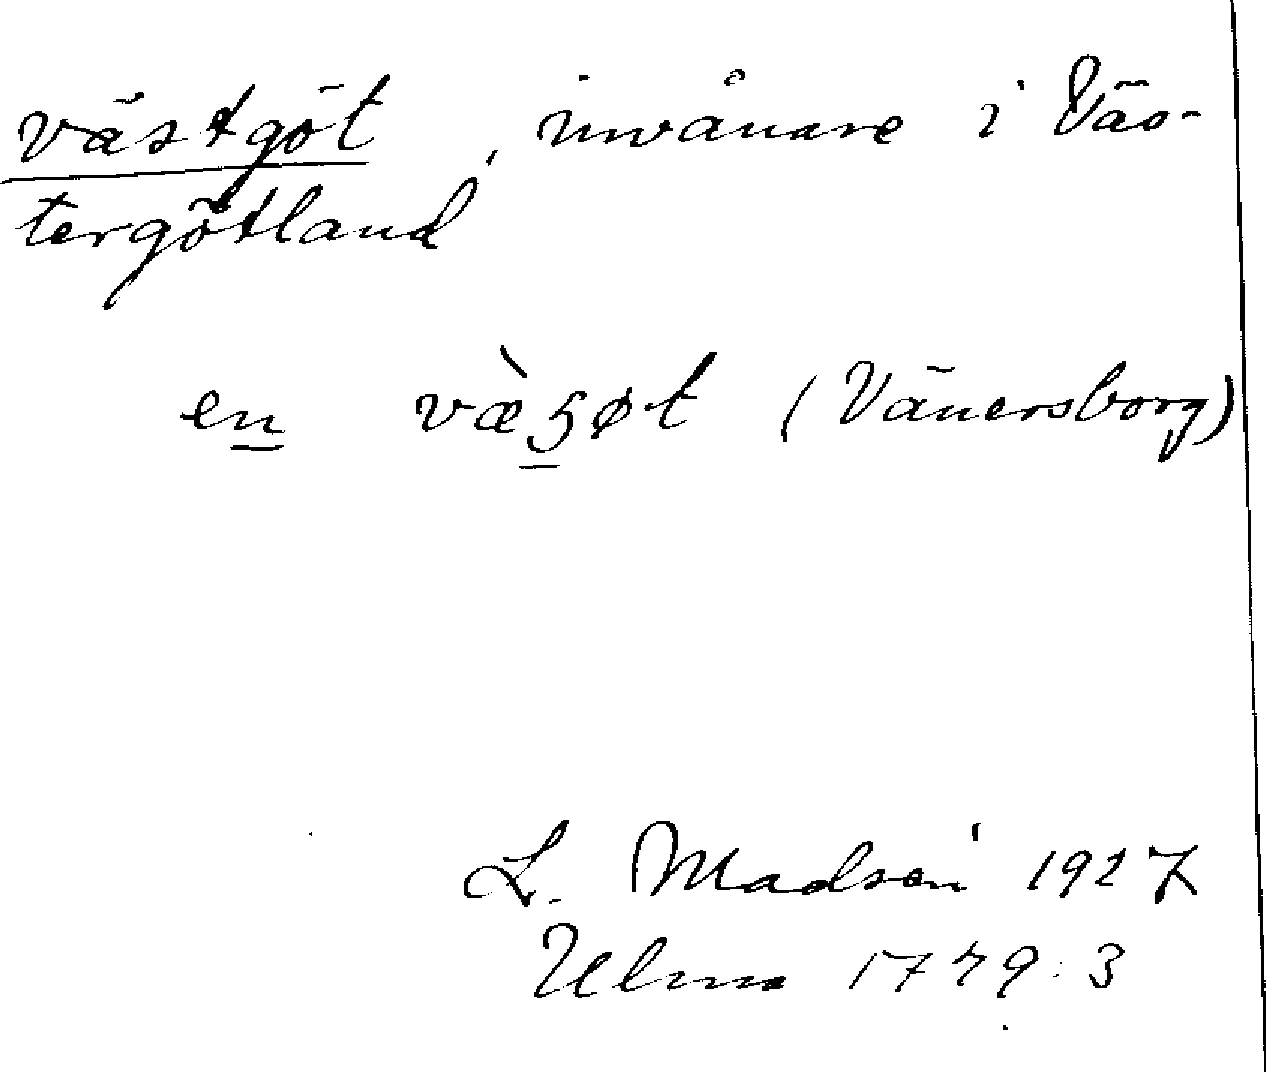 västgöt, invånare i Väs-
tergötland
en væ̀ʒøt (Vänersborg)
L. Madsén 1927
Ulma 1779:3